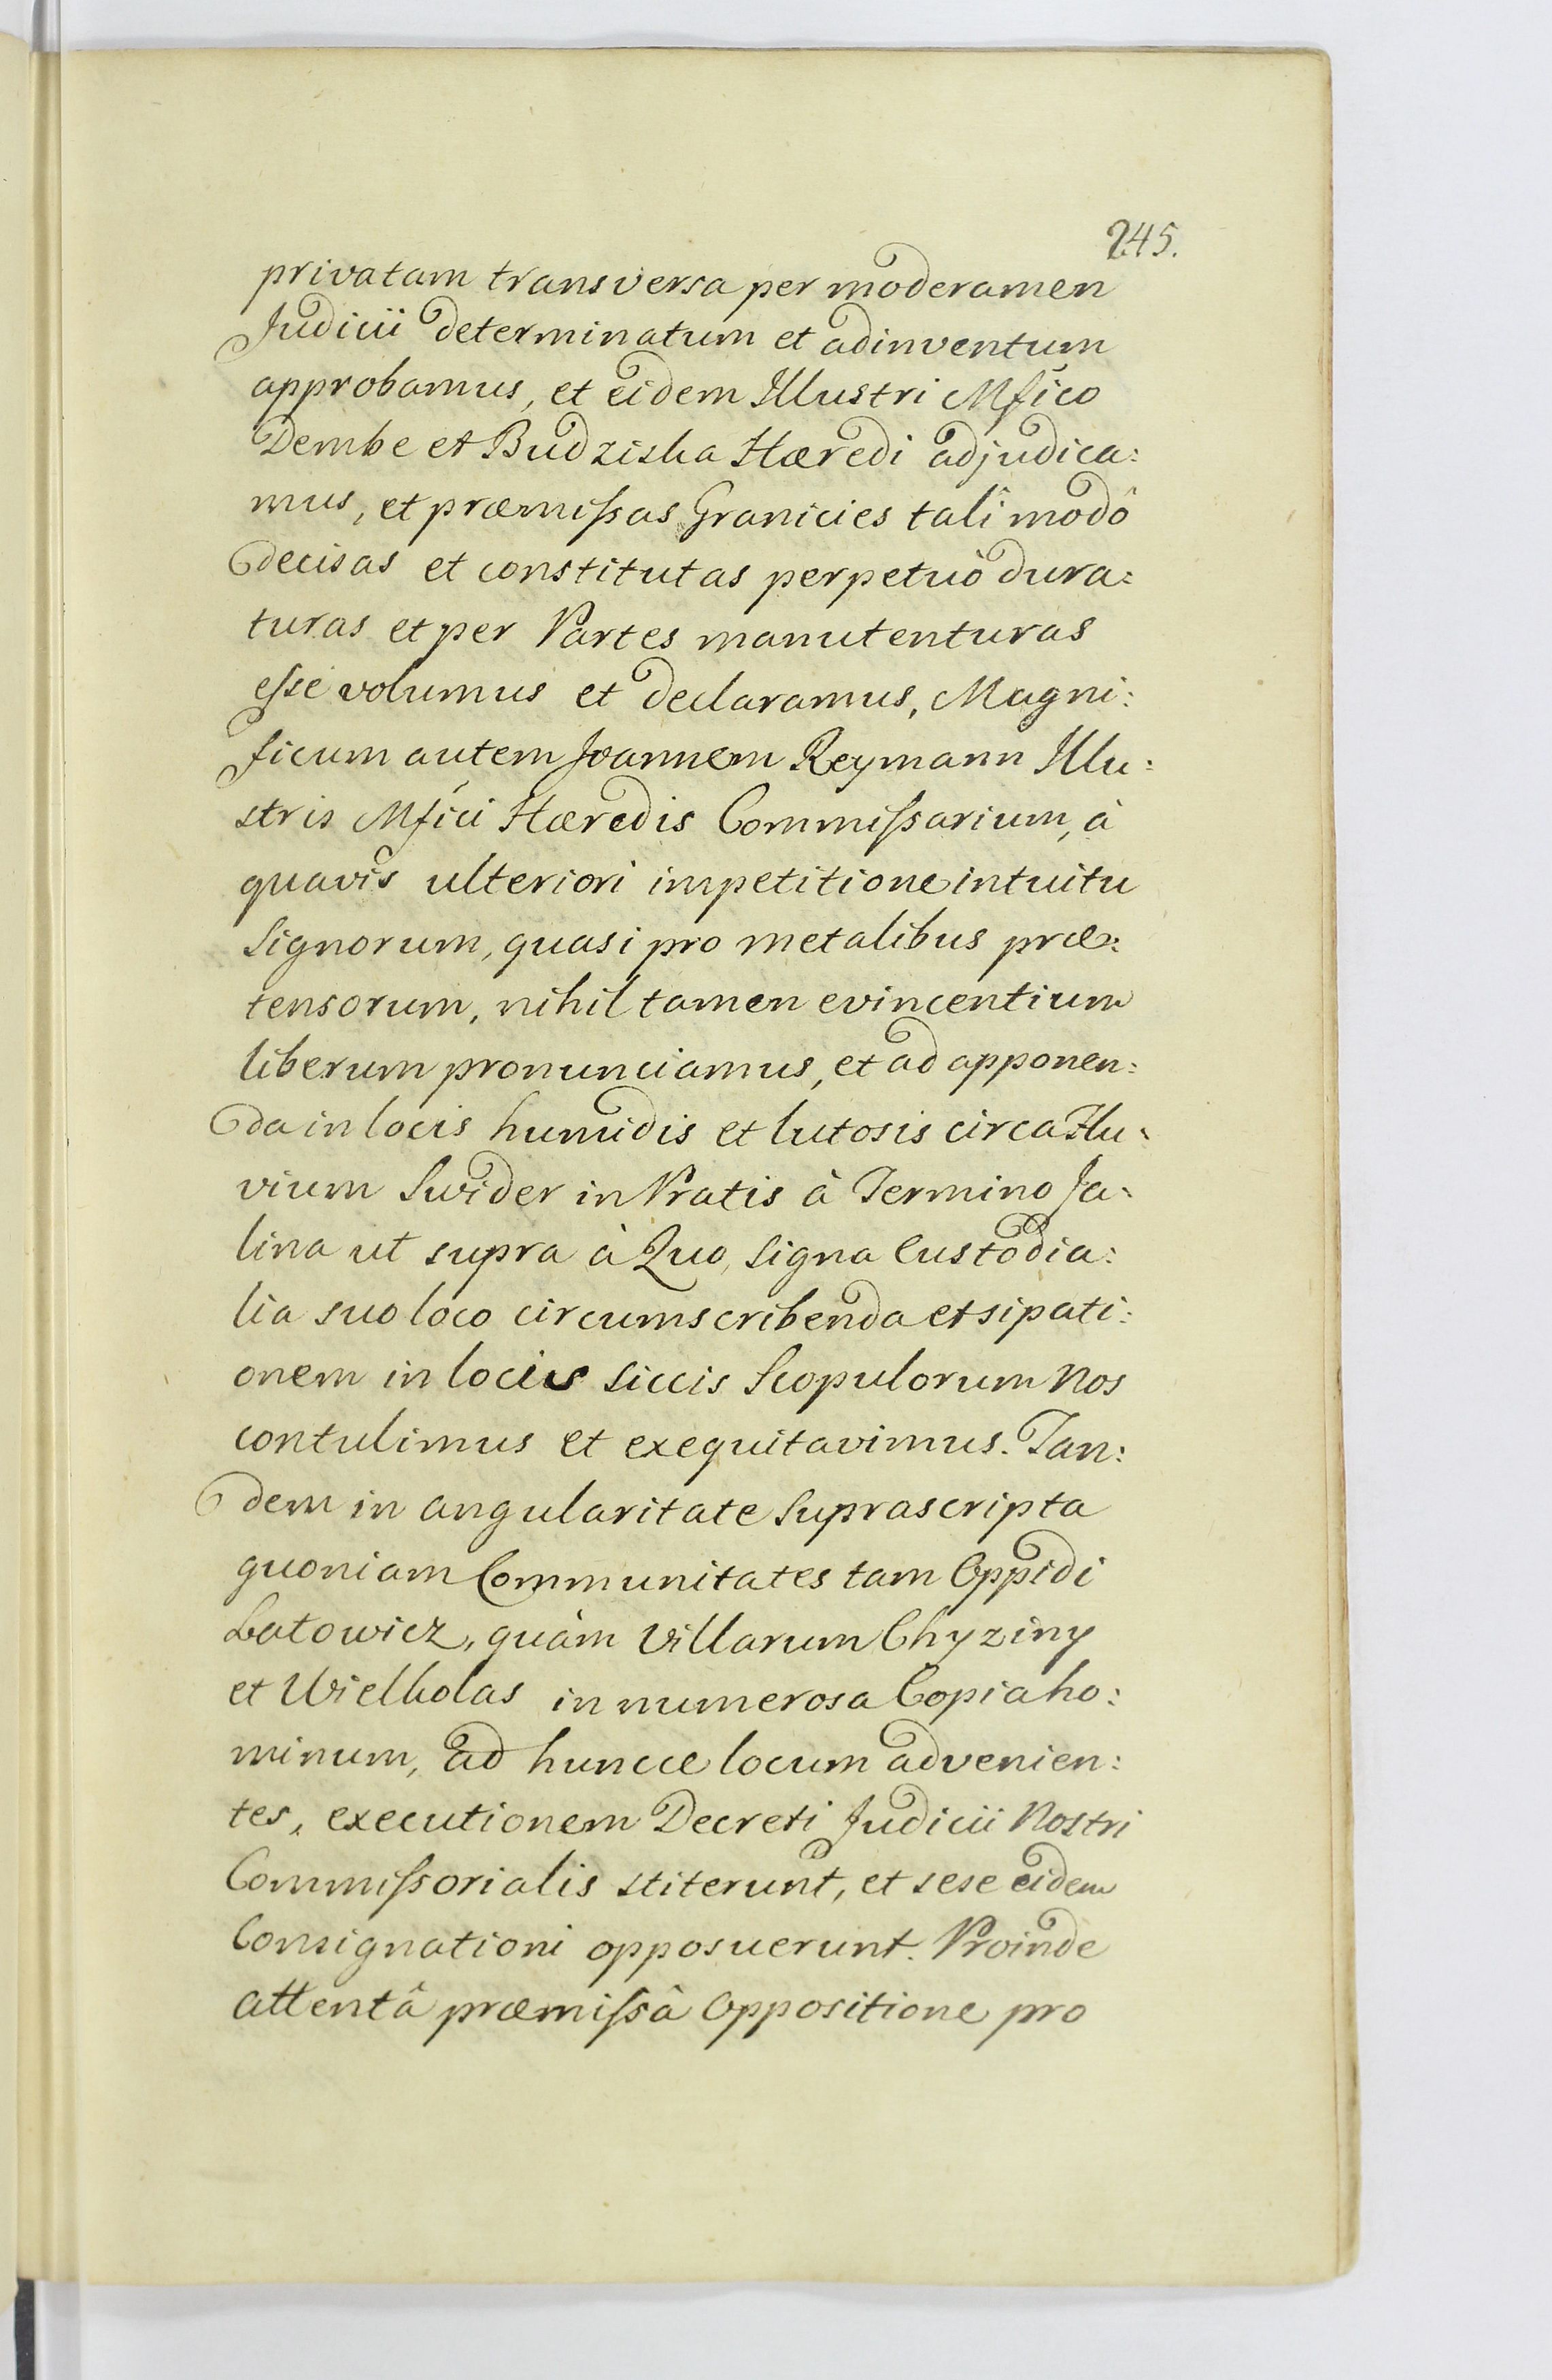 245.
privatam transversa per moderamen
Judicii determinatum et adinventum
approbamus, et eidem Illustri Mfico
Dembe et Budziska Hæredi adjudica:
mus, et præmiſsas Granicies talî modô
decisas et constitutas perpetuò dura:
turas et per Partes manutenturas
eſse volumus et declaramus, Magni:
ficum autem Joannem Reymann Illu:
stris Mfici Hæredis Commiſsarium, à
quavis ulteriori impetitione intuitu
Signorum, quasi pro metalibus præ:
tensorum, nihil tamen evincentium
liberum pronunciamus, et ad apponen:
da in locis humidis et lutosis circa Flu:
vium Swider in Pratis à Termino Ja:
lina ut supra à Quo, Signa Custodia:
lia suo loco circumscribenda et sipati:
onem in locis siccis Scopulorum Nos
contulimus et exequitavimus. Tan:
dem in angularitate Suprascripta
quoniam Communitates tam Oppidi
Latowicz, quàm Villarum Chyziny
et Wielholas in numerosa Copia ho:
minum, ad huncce locum advenien:
tes, executionem Decreti Judicii Nostri
Commiſsorialis stiterunt, et sese eidem
Consignationi opposuerunt. Proinde
attentâ præmiſsâ Oppositione pro